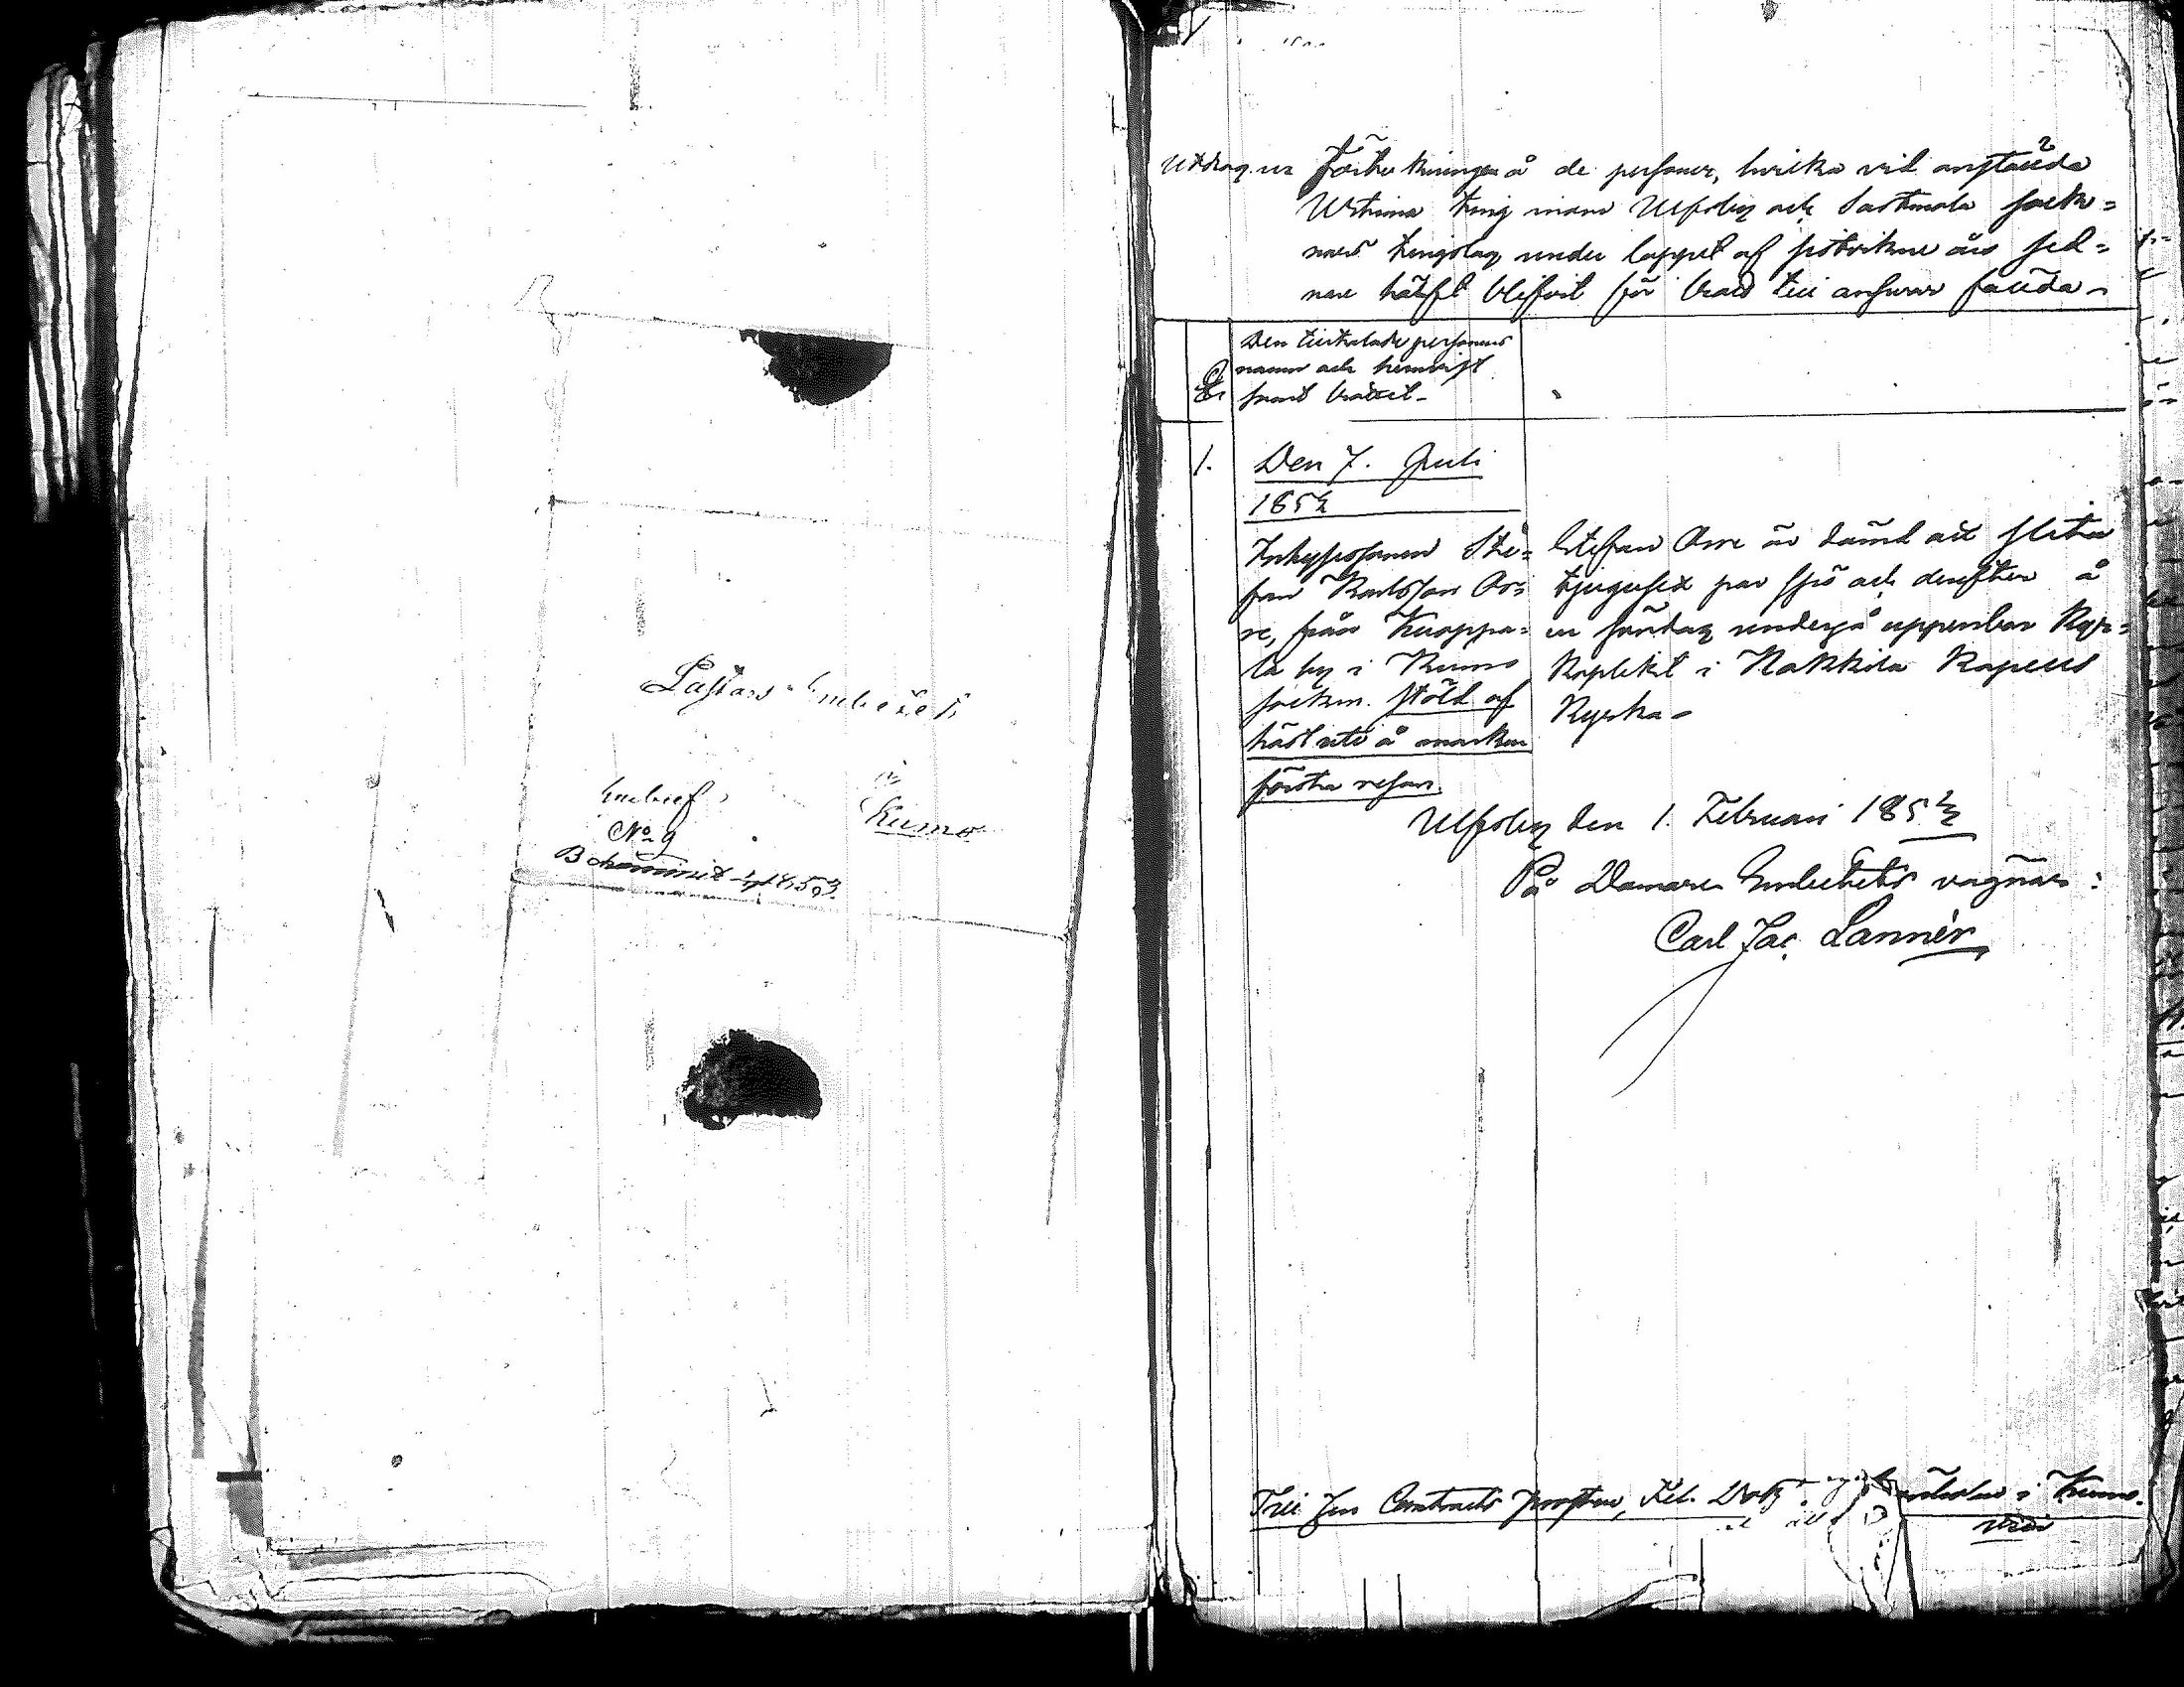 Pastors Embetet
i
Kumo
Embref
No 9
Utdrag ur Förteckningen å de personer, hvilka vid anstälda
Urtima ting inom Ulfsby och Sastmola sock-
nars tingslag under loppet af sistvikne års sed-
nare hälft blifvit för brott till answar fälda.
Den tilltalade personens
namn och hemvist
samt brottet.
1.
Den 7. Juli
1852
Inhysesmannen Ste-
fan Karlsson Or-
re, från Knappa-
la by i Kumo
socken. Stöld af
häst ute å marken
första resan.
Stefan Orre är dömd att slita
tjugusex par spö och derefter å
en söndag undergå uppenbar Kyr-
koplikt i Nakkila Kapells
Kyrka.
Ulfsby den 1. Februari 1853
På Domare Embetets vägnar:
Carl Jac. Lannér
Till Herr Contracts Prosten,
i Kumo.